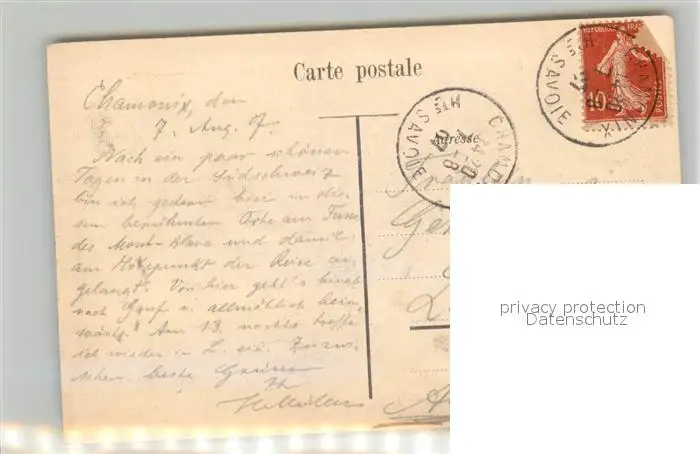 Carte postale
Chamonix, den
7. Aug. 07.
Nach ein paar schönen
Tagen in der Südschweiz
bin ich gestern hier in die-
sem berühmten Orte am Fusse
des Mont-Blanc und damit
am Höhepunkt der Reise an-
gelangt. Von hier geht's hinab
nach Genf u. allmählich heim-
wärts. Am 13. nachts treffe
ich wieder in L. ein. Inzwi-
schen beste Grüsse
Adresse
CHAMONIX
HTE SAVOIE
REPUBLIQUE FRANÇAISE
10
POSTES
SAVOIE
privacy protection
Datenschutz